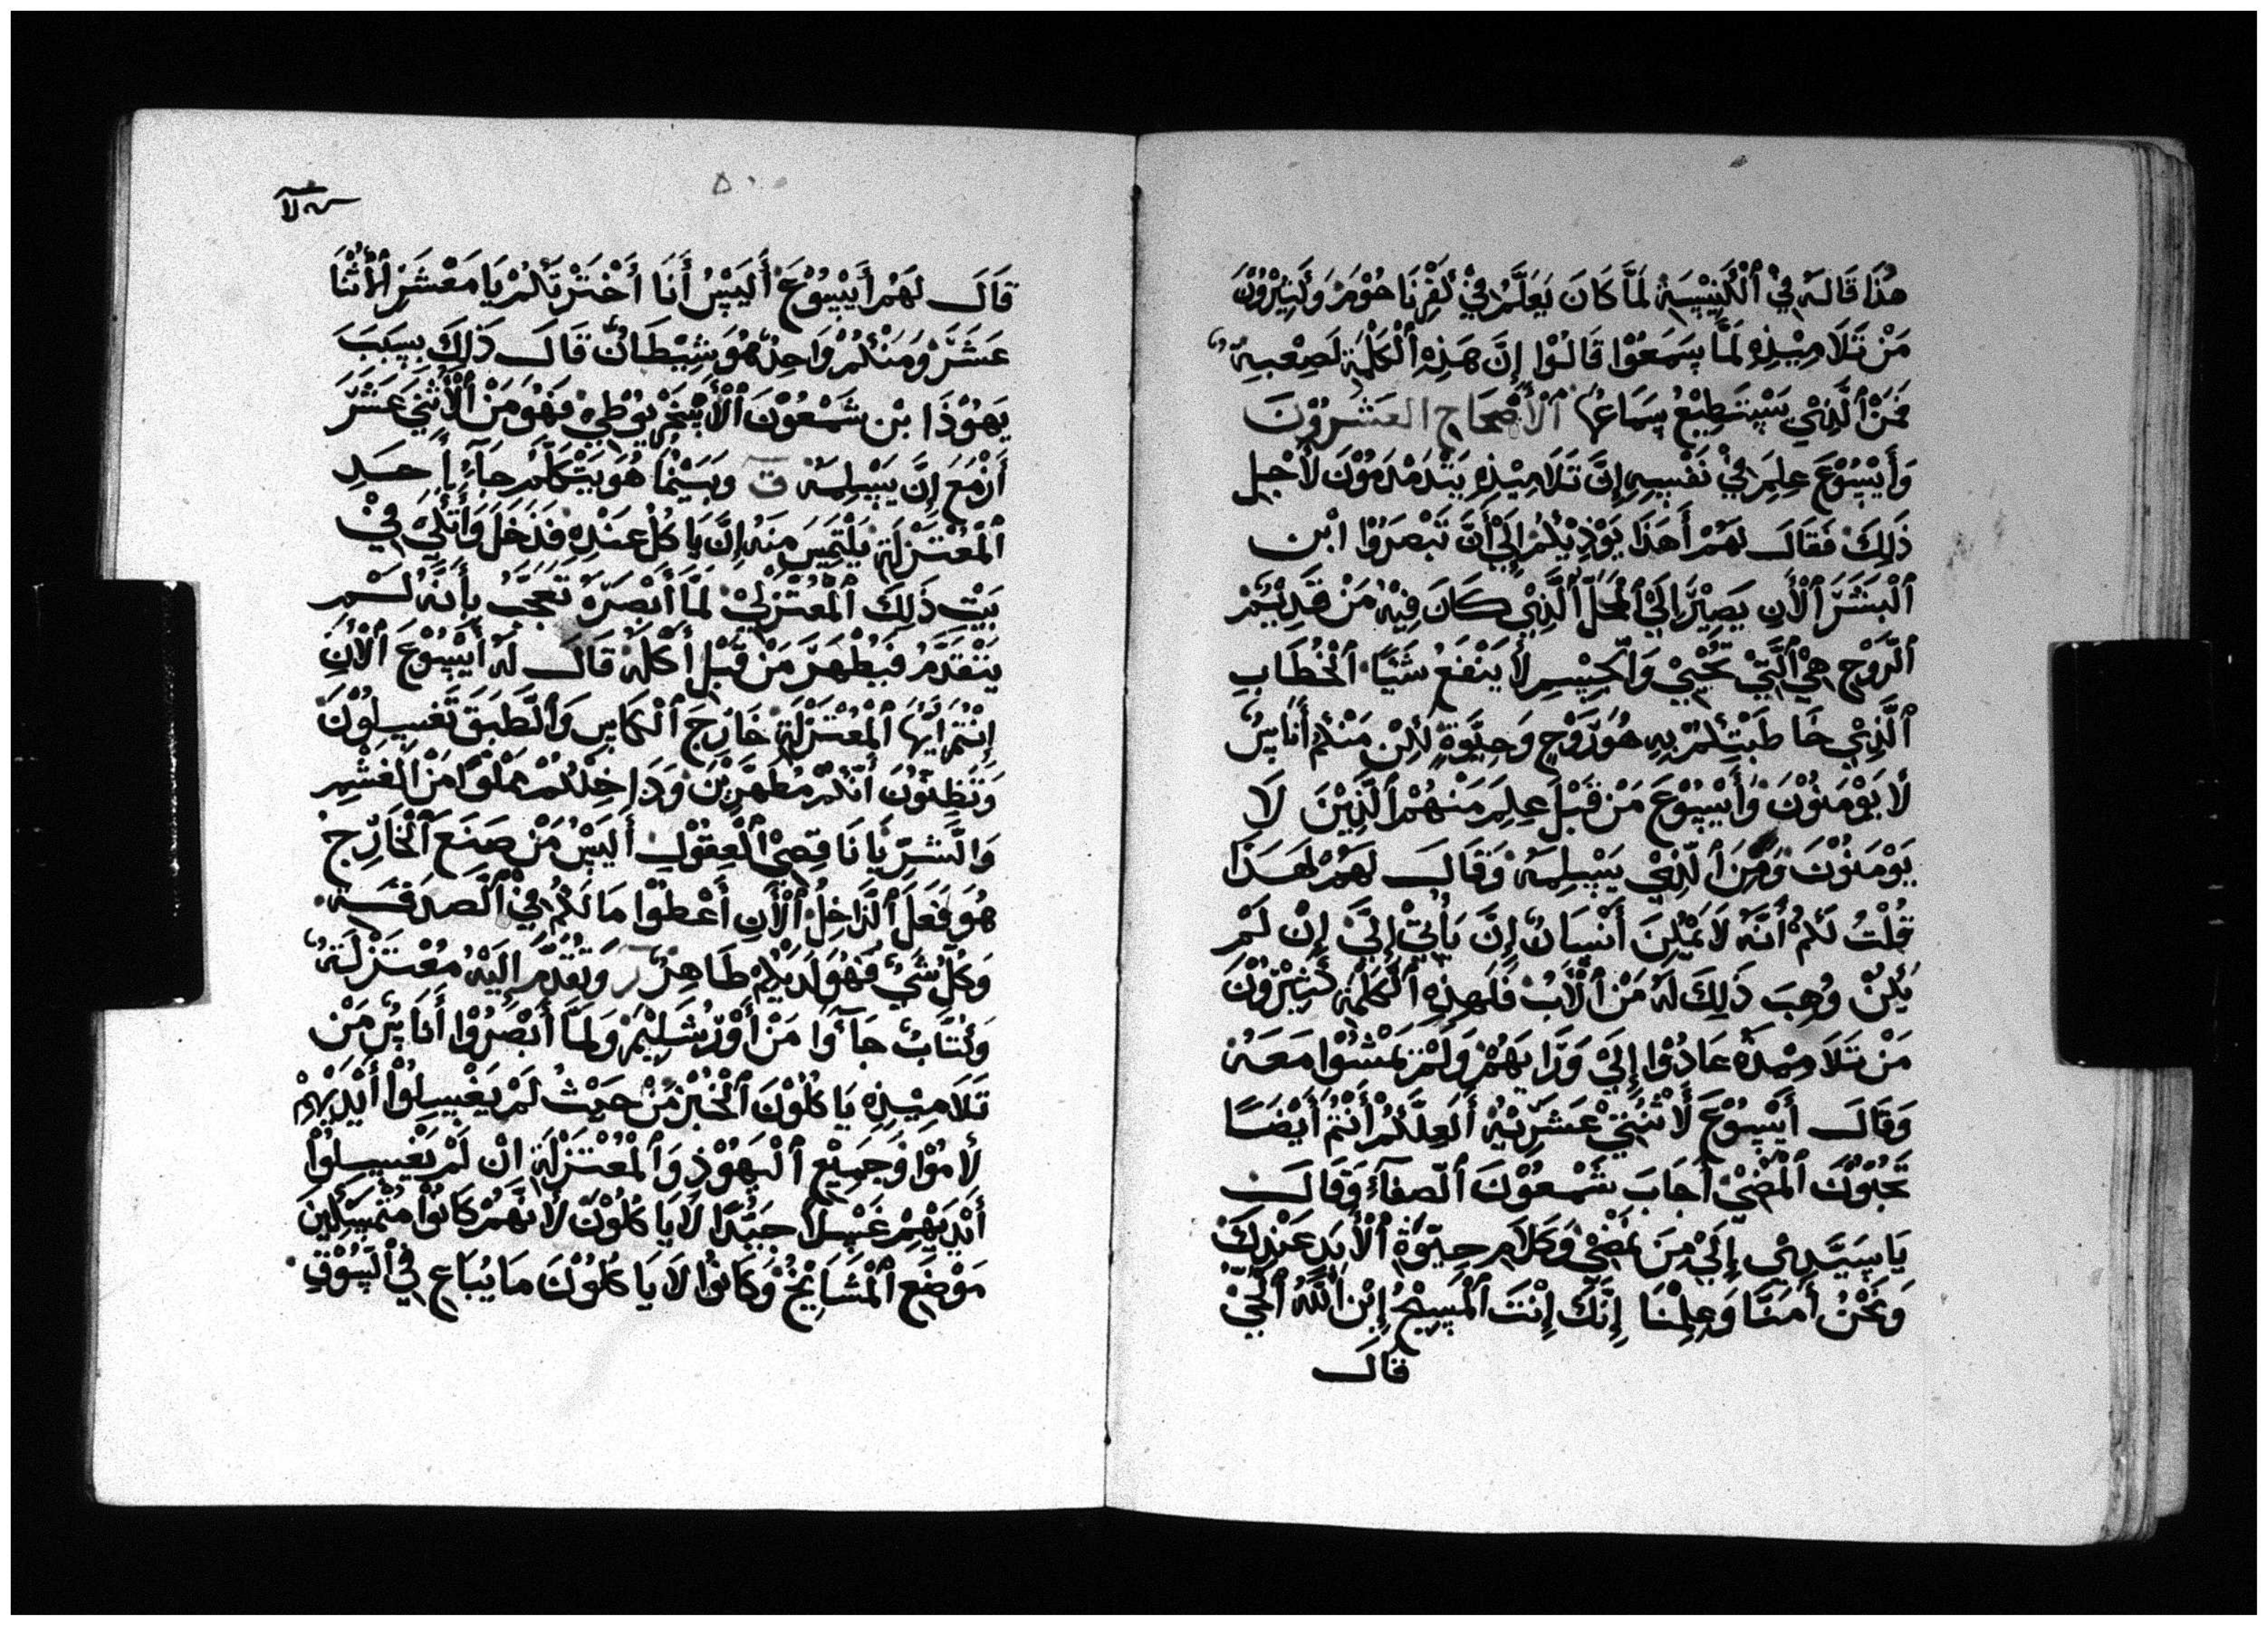 هُذَا قَالَهُ فِيْ ٱلْكَنِيْسِيَةِ لَمَّا كَانَ يَعَلَّمُ فِيْ كَفِرْنَا حُوْمَرْ وَكَثِيْرُوْنَ
مَنْ تَلَامِيْذِهِ لَمَّا سَمَعُوْا قَالُوْا إِنَّ هَذِهِ ٱلْكَلْمَةِ لَصِعْبِهٌ
فَمَنْ ٱلَّذِيْ يَسْتَطِيْعُ سَمَاعُهَا ٱلْأَصْحَاحِ العَشَرُوْنَ
وَأَيْسُوْعَ عِلِمَ فِيْ نَفْسِهِ إِنَّ تَلَامِيْذِهِ يَتْدَمْدَمُوْنَ لأَجِل
ذَلِكَ فَقَالَ لَهُمْ أَهَذَا يَوْذِيْكُمْ إِلَيْ أَنَّ تَبْصَرُوْا ابْن
ٱلْبَشَرَ ٱلْأَنِ يَصِيْرُ إِلَيْ ٱلْمَحَلِّ ٱلَّذِيْ كَانَ فِيْهُ مَنْ قَدِيْمْ
ٱلْرَّوْحِ هِيْ ٱلَّتِيْ تَحْيِيْ وَٱلْجِسِمِ لأَ يَنْفَعُ شَيًا ٱلْخُطَابِ
ٱلَّذِيْ خَاطَبْتِكُمْ بِهِ هُوَ رَوْحٍ وَحِيَّوَةٍ لَكِنْ مَنْكُمْ أُنَاسٌ
لأَ يَوْمَنُوْنَ وَأَيْسُوْعَ مَنْ قَبْلَ عِلِمَ مَنْهُمْ ٱلَّذِيْنَ لَا
يَوْمَنُوْنَ وَمَنَ ٱلَّذِيْ يَسْلِمَهُ وَقَالَ لَهُمْ لَهَذَا
قُلْتُ لَكُمْ أَنَّهُ لَا يَمْكِنَ أَنْسَانٌ إِنَّ يَأْتِيْ إِلَيَّ إِنْ لَمْ
يَكِنْ وُهِبَ ذَلِكَ لَهُ مَنْ ٱلْأَبُ فَلَهِذِهِ ٱلْكَلْمَةِ كَثِيْرُوْنَ
مَنْ تَلَامِيْذَهُ عَادُوْا إِلَيْ وَرَايَهُمْ وَلَمْ يَمْشُوْا مَعَهُ
وَقَالَ أَيْسُوْعَ لَأْثْنَيْ عَشَرِيْهُ أَلَعِلَّكُمْ أَنْتُمْ أَيْضًا
تَحَبُّوْنَ ٱلْمُضْيْ أَجَابَ شَمْعُوْنَ ٱلصَّفَآءُ وَقَالَ
يَا سَيَّدِيْ إِلَيْ مِنَ نَمْضِيْ وَكَلَامَ حِيَّوَةِ ٱلْأَبَدِ عَنْدِكَ
وَنَحْنُ أَمَنَّا وَعِلِمْنَا إِنَّكَ إِنْتَ ٱلْمَسِيْحُ إِبْنِ ٱللَّهُ ٱلْحَيْ
قال
٥٠
قَالَ لَهُمْ أَيْسُوْعَ أَلَيْسُ أَنَا أَخْتَرْتَكُمْ يَا مَعْشَرَ ٱلْأَثْنَا
عَشَرَ وَمَنْكُمْ وَاحِدٌ هُوَ شِيْطَانٌ قَالَ ذَلِكَ بِسَبَبَ
يَهُوْذَا بْن شَمْعُوْنَ ٱلْأَسْخَرْيُوْطِيْ فَهُوَ مَنْ ٱلْأَثْنَيْ عَشَرَ
أَزْمَعَ إِنَّ يَسْلِمَهُ ق وَبَيَيْنُمَا هُوَ يَتْكَلَّمُ جَآءُ أَحَدِ
ٱلْمُعْتَزْلَةِ يَلْتَمِسَ مَنَهُ إِنَّ يَاكُلْ عَنْدِهِ فَدَخَلَ وَأَتَّكَيْ فِيْ
بَيْتِ ذَلِكَ ٱلْمُعْتَزْلِيْ لَمَّا أَبْصَرَهُ تَعَجَّبَ بِأَنَّهُ لَمْ
يَتْقَدَّمُ فَيُطْهَرَ مَنْ قَبْلِ أَكْلَهُ قَالَ لَهُ أَيْسُوْعَ ٱلْأَنِ
إِنْتُمْ أَيُّهَا ٱلْمُعْتَزْلَةِ خَارْجَ ٱلْكَاسِ وَٱلْطَّبَقَ تَغْسِلُوْنَ
وَتَظِنُّوْنَ أَنَّكُمْ مُطَهَرِيْنَ وَدَاخِلْكُمْ مَمْلُوًا مَنْ ٱلْغَشْمِ
وَٱلْشَّرِّ يَا نَاقِصِيْ ٱلْعِقُوْلِ أَلَيْسُ مَنْ صَنَعَ ٱلْخَارْجِ
هُوَ فَعَلَ ٱلْدَّاخِلُ ٱلْأَنِ أَعْطُوْا مَا لَكُمْ فِيْ ٱلْصَّدَقَةِ
وَكُلْ شَيْ فَهُوَ لَدَيْكُمْ طَاهِرٌ ر وَتَقَدَّمَ إِلَيْهُ مُعْتَزْلَةٌ
وَكُتَّابٌ جَآءُوْا مَنْ أَوْرُشَلِيْمَ وَلَمَّا أَبْصَرُوْا أُنَاسٌ مَنْ
تَلَامِيْذِهِ يَاكُلُوْنَ ٱلْخُبْزَ مَنْ حَيْثُ لَمْ يَغْسِلُوْا أَيْدَيْهِمْ
لَامُوْا وَجَمِيْعِ ٱلْيَهُوْذِ وَٱلْمُعْتَزْلَةِ إِنْ لَمْ يَغْسِلُوْا
أَيْدَيْهِمْ غَسْلاً جَيَّدًا لَا يَاكُلُوْنَ لَأَنَّهُمْ كَانُوْا مُتْمَسِّكِيْنَ
مَوْضَعِ ٱلْمَشَايْخِ وَكَانُوْا لَا يَاكُلُوْنَ مَا يُبَاعِ فِيْ ٱلْسُوْقِ